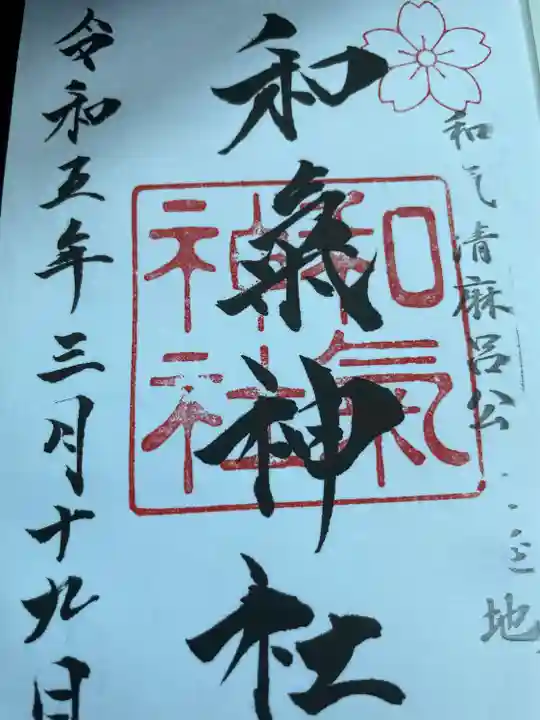 和气清麻呂公
地
和氣神社
和氣
神社
令和五年三月十九日